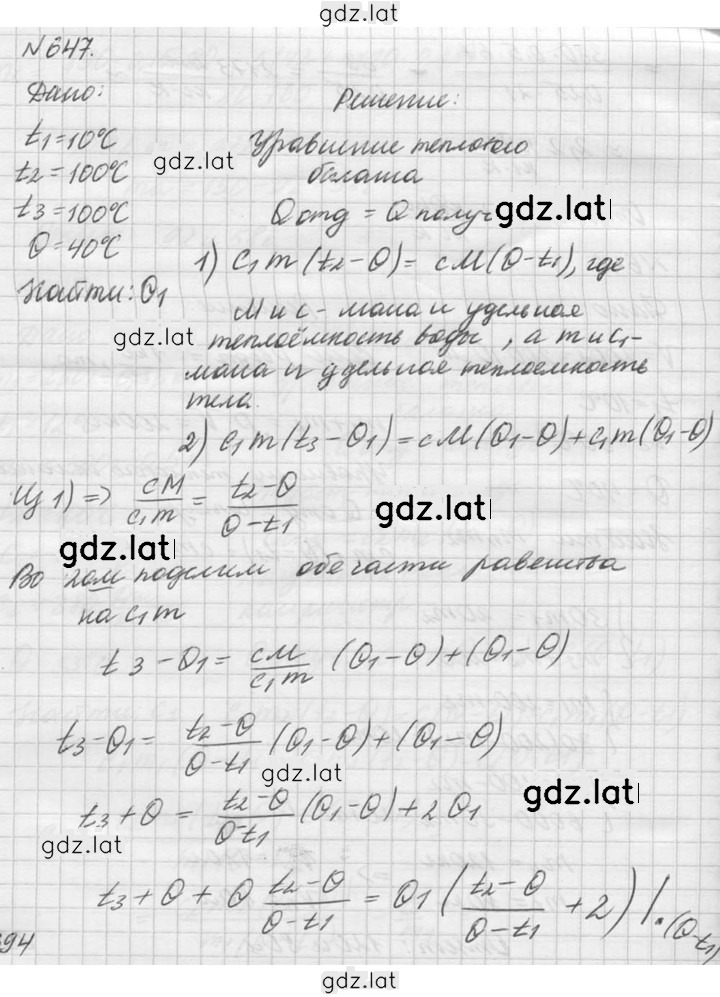 gdz.lat
N 647.
Дано:
t1=10°C
t2=100°C
t3=100°C
Θ=40°C
Найти: Θ1
Решение:
Уравнение теплового
баланса
gdz.lat
Qотд = Qполуч
gdz.lat
1) c1m(t2-Θ)= cM(Θ-t1), где
M и c - масса и удельная
теплоёмкость воды, а m и c1-
gdz.lat
масса и удельная теплоемкость
тела.
2) c1m(t3-Θ1)=cM(Θ1-Θ)+c1m(Θ1-Θ)
Из 1) => cM/c1m = (t2-Θ)/(Θ-t1)
gdz.lat
gdz.lat
Во 2ом поделим обе части равенства
на c1m
t3-Θ1= cM/c1m (Θ1-Θ)+(Θ1-Θ)
t3-Θ1= (t2-Θ)/(Θ-t1) (Θ1-Θ)+(Θ1-Θ)
gdz.lat
gdz.lat
t3+Θ = (t2-Θ)/(Θ-t1) (Θ1-Θ)+2Θ1
gdz.lat
t3+Θ+Θ (t2-Θ)/(Θ-t1) = Θ1((t2-Θ)/(Θ-t1) +2) |·(Θ-t1)
94
gdz.lat